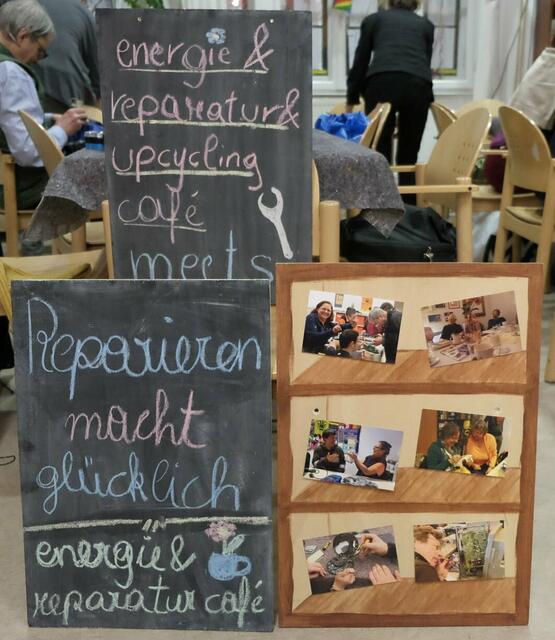 energie &
reparatur &
upcycling
café
meets
Reparieren
macht
glücklich
energie &
reparatur café